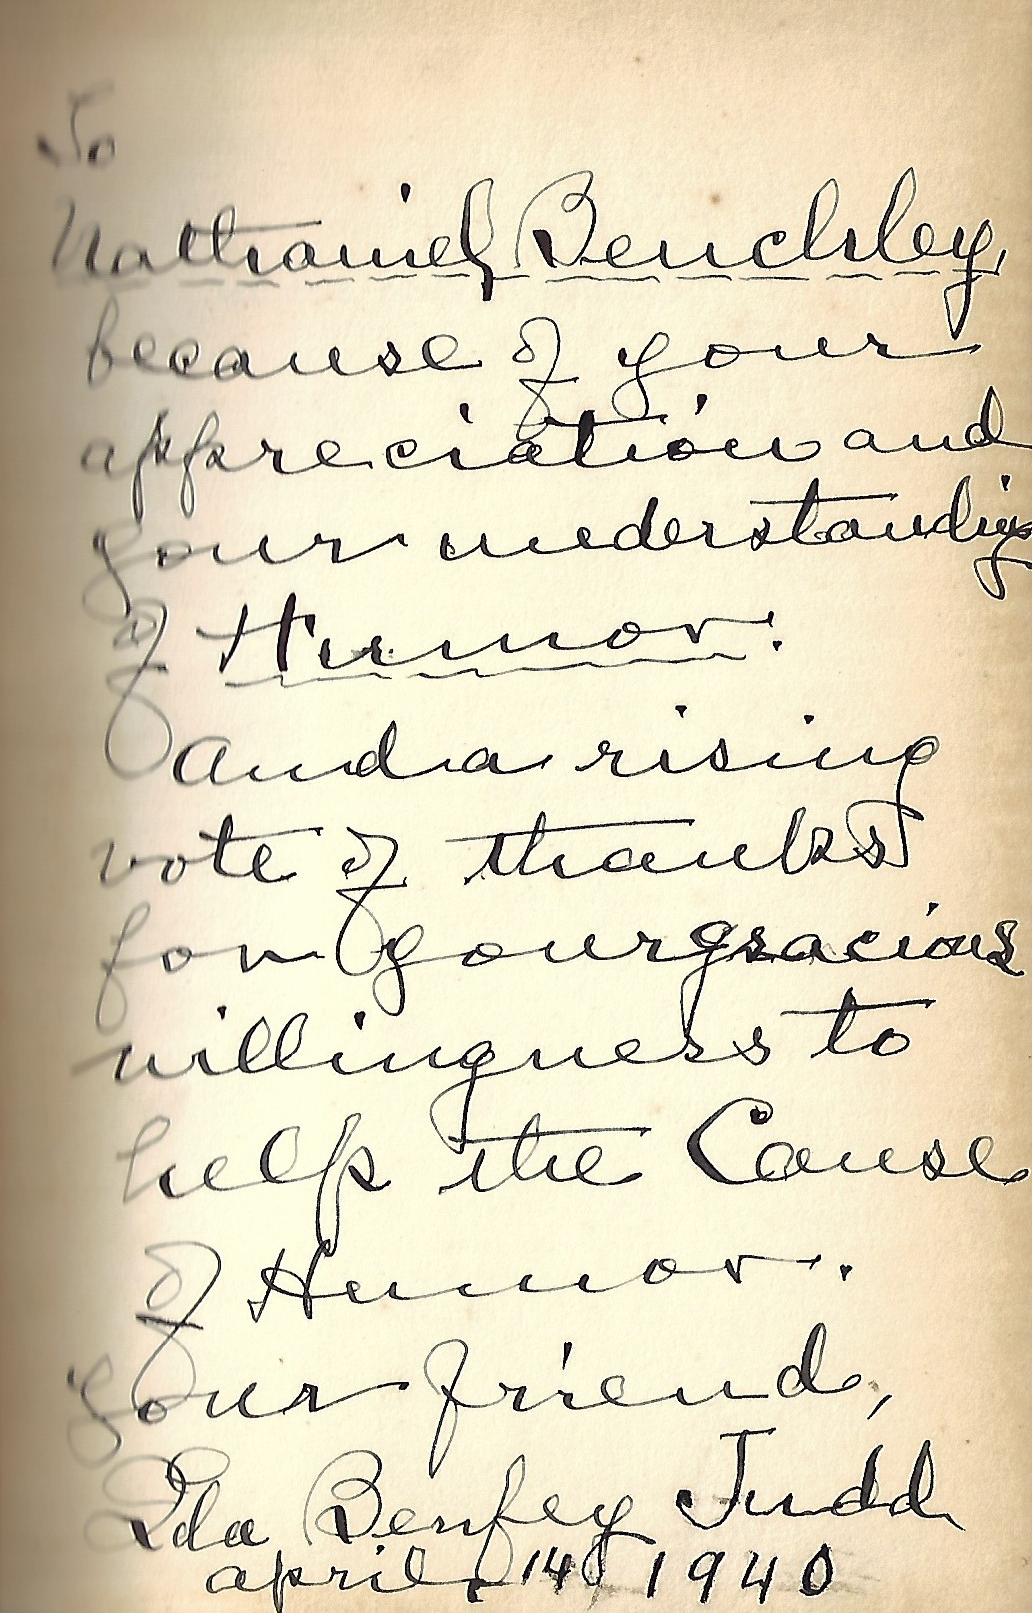 To
Nathaniel Benchley,
because of your
appreciation and
your understanding
of Humor.
And a rising
vote of thanks
for your gracious
willingness to
help the Cause
of Humor.
Your friend,
Ida Benfey Judd
April 14 1940